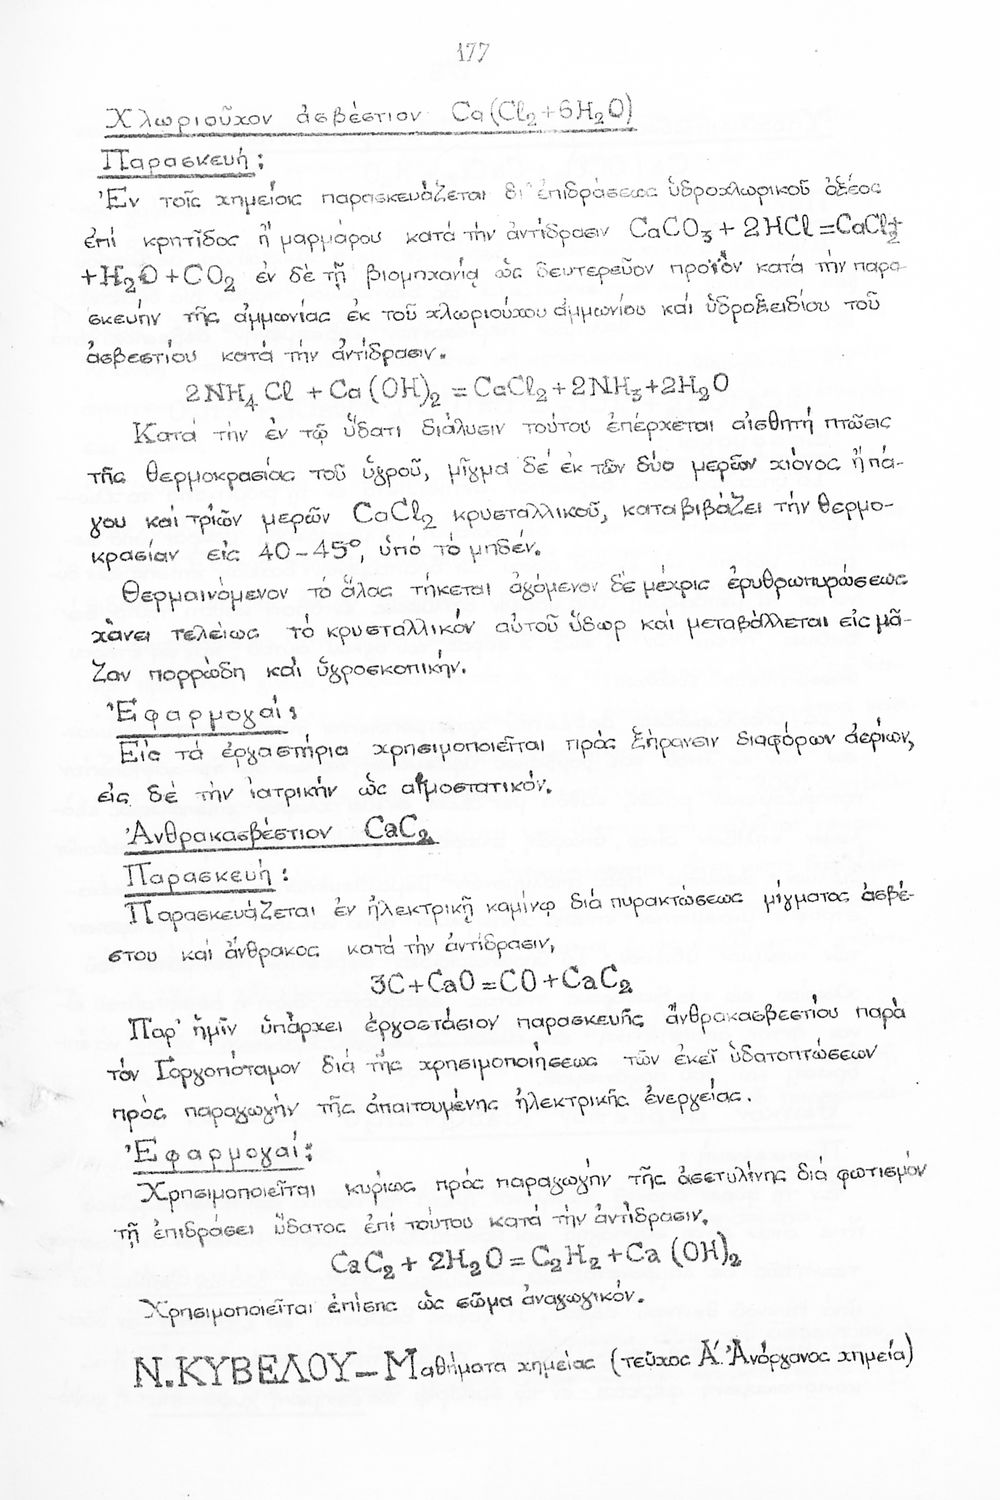 177
Χλωριοῦχον ἀσβέστιον Ca(Cl₂+6H₂O)
Παρασκευή:
Ἐν τοῖς χημείοις παρασκευάζεται δι' ἐπιδράσεως ὑδροχλωρικοῦ ὀξέος
ἐπί κρητίδος ἤ μαρμάρου κατά τήν ἀντίδρασιν CaCO₃+2HCl=CaCl₂+
+H₂O+CO₂ ἐν δέ τῇ βιομηχανίᾳ ὡς δευτερεῦον προϊόν κατά τήν παρα-
σκευήν τῆς ἀμμωνίας ἐκ τοῦ χλωριούχου ἀμμωνίου καί ὑδροξειδίου τοῦ
ἀσβεστίου κατά τήν ἀντίδρασιν.
2NH₄Cl + Ca(OH)₂ = CaCl₂+2NH₃+2H₂O
Κατά τήν ἐν τῷ ὕδατι διάλυσιν τούτου ἐπέρχεται αἰσθητή πτῶσις
τῆς θερμοκρασίας τοῦ ὑγροῦ, μῖγμα δέ ἐκ τῶν δύο μερῶν χιόνος ἤ πά-
γου καί τριῶν μερῶν CaCl₂ κρυσταλλικοῦ, καταβιβάζει τήν θερμο-
κρασίαν εἰς 40-45°, ὑπό τό μηδέν.
Θερμαινόμενον τό ἅλας τήκεται ἀγόμενον δέ μέχρις ἐρυθρωπυρώσεως
χάνει τελείως τό κρυσταλλικόν αὐτοῦ ὕδωρ καί μεταβάλλεται εἰς μᾶ-
ζαν πορρώδη καί ὑγροσκοπικήν.
Ἐφαρμογαί:
Εἰς τά ἐργαστήρια χρησιμοποιεῖται πρός ξήρανσιν διαφόρων ἀερίων,
εἰς δέ τήν ἰατρικήν ὡς αἱμοστατικόν.
Ἀνθρακασβέστιον CaC₂
Παρασκευή:
Παρασκευάζεται ἐν ἠλεκτρικῇ καμίνῳ διά πυρακτώσεως μίγματος ἀσβέ-
στου καί ἄνθρακος κατά τήν ἀντίδρασιν,
3C+CaO=CO+CaC₂
Παρ' ἡμῖν ὑπάρχει ἐργοστάσιον παρασκευῆς ἀνθρακασβεστίου παρά
τόν Γοργοπόταμον διά τῆς χρησιμοποιήσεως τῶν ἐκεῖ ὑδατοπτώσεων
πρός παραγωγήν τῆς ἀπαιτουμένης ἠλεκτρικῆς ἐνεργείας.
Ἐφαρμογαί:
Χρησιμοποιεῖται κυρίως πρός παραγωγήν τῆς ἀσετυλίνης διά φωτισμόν
τῇ ἐπιδράσει ὕδατος ἐπί τούτου κατά τήν ἀντίδρασιν.
CaC₂+2H₂O=C₂H₂+Ca(OH)₂
Χρησιμοποιεῖται ἐπίσης ὡς σῶμα ἀναγωγικόν.
Ν.ΚΥΒΕΛΟΥ-Μαθήματα χημείας (τεῦχος Α΄. Ἀνόργανος χημεία)